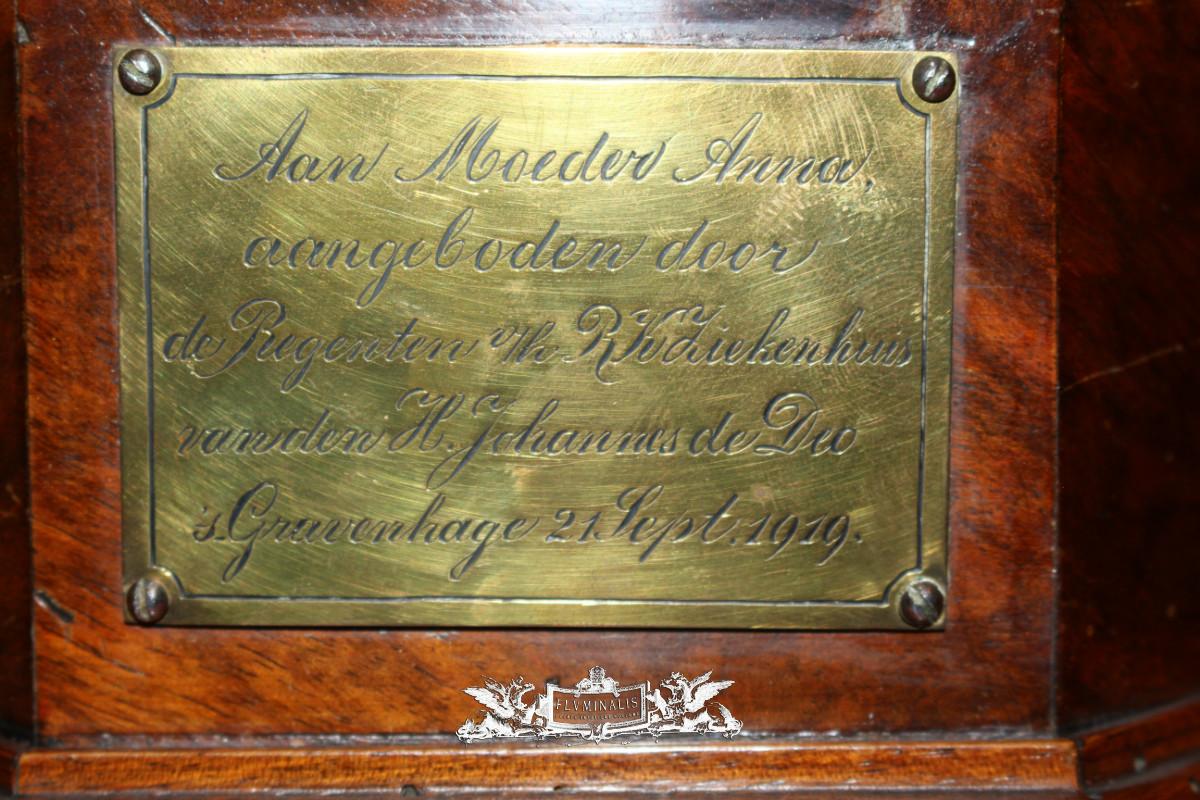 Aan Moeder Anna,
aangeboden door
de Regenten v/h R.K. Ziekenhuis
van den H. Johannes de Deo
's-Gravenhage 21 Sept. 1919.
FLVMINALIS